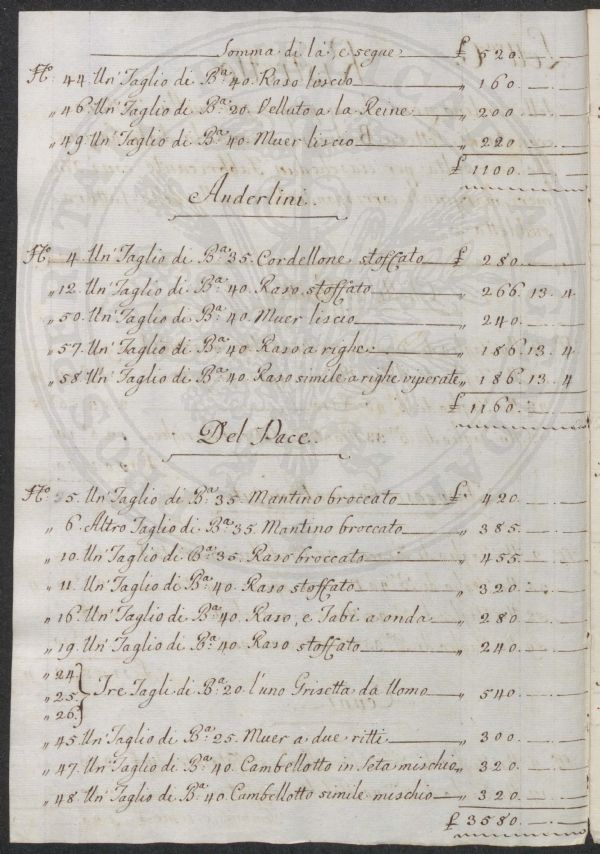 Somma di là, e segue £ 520.
Nº. 44. Un' Taglio di Bª. 40. Raso loscio „ 160.
„ 46. Un' Taglio di Bª. 20. Velluto a la Reine „ 200.
„ 49. Un' Taglio di Bª. 40. Muer liscio „ 220.
£ 1100.
Anderlini.
Nº. 4. Un' Taglio di Bª. 35. Cordellone stoffato £ 280.
„ 12. Un' Taglio di Bª. 40. Raso stoffato „ 266. 13. 4
„ 50. Un' Taglio di Bª. 40. Muer liscio „ 240.
„ 57. Un' Taglio di Bª. 40. Raso a righe „ 186. 13. 4
„ 58. Un' Taglio di Bª. 40. Raso simile a righe viperate „ 186. 13. 4
£ 1160.
Del Pace.
Nº. 5. Un' Taglio di Bª. 35. Mantino broccato £ 420.
„ 6. Altro Taglio di Bª. 35. Mantino broccato „ 385.
„ 10. Un' Taglio di Bª. 35. Raso broccato „ 455.
„ 11. Un' Taglio di Bª. 40. Raso stoffato „ 320.
„ 16. Un' Taglio di Bª. 40. Raso, e Tabi a onda „ 280.
„ 19. Un' Taglio di Bª. 40. Raso stoffato „ 240.
„ 24
„ 25. Tre Tagli di Bª. 20. l'uno Grisetta da Uomo „ 540.
„ 26.
„ 45. Un' Taglio di Bª. 25. Muer a due ritti „ 300.
„ 47. Un' Taglio di Bª. 40. Cambellotto in Seta mischio „ 320.
„ 48. Un' Taglio di Bª. 40. Cambellotto simile mischio „ 320.
£ 3580.